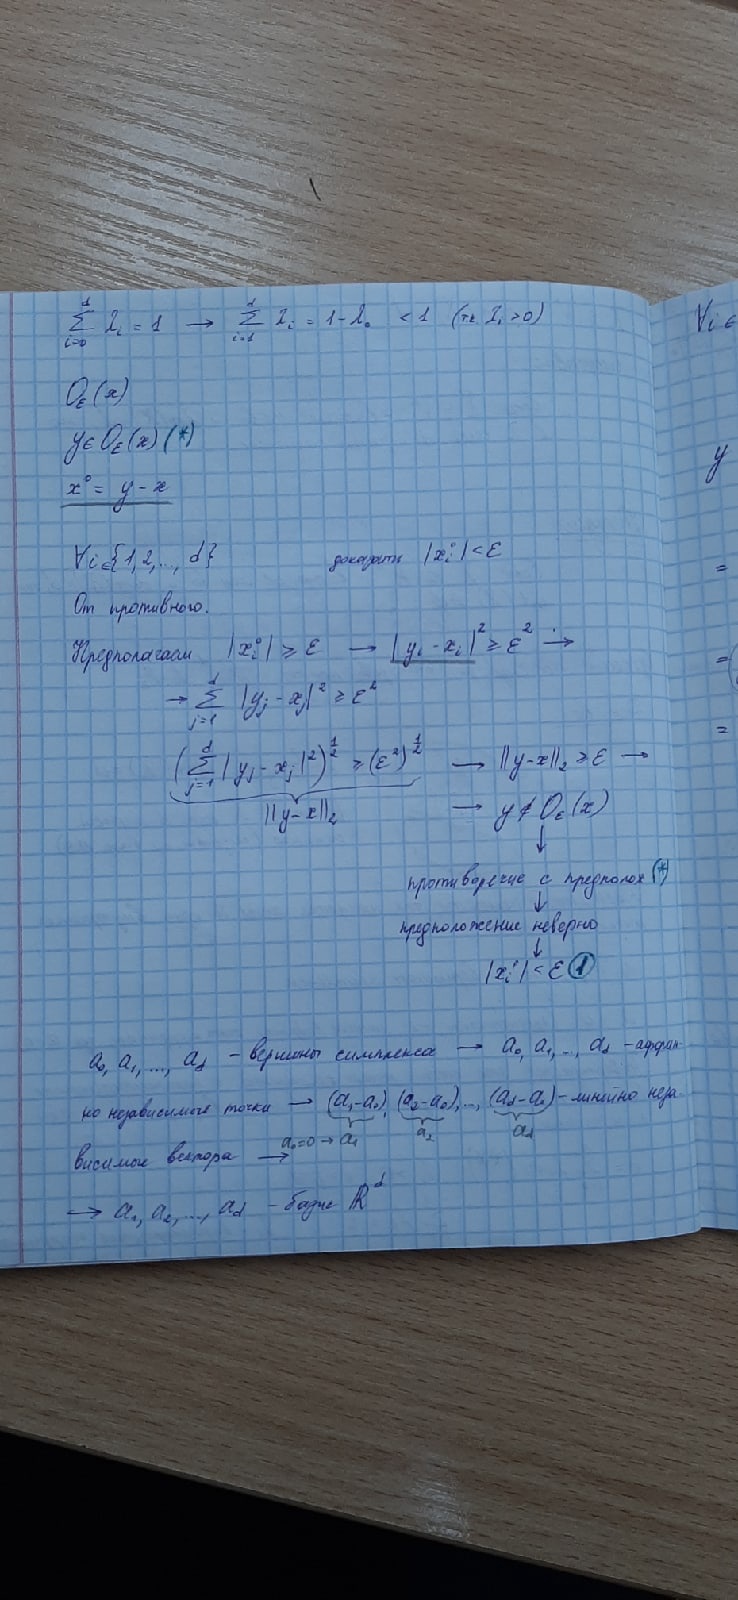 ∑_{i=0}^{d} λ_i = 1 → ∑_{i=1}^{d} λ_i = 1 - λ_0 < 1 (тк λ_i > 0)
O_ε(x)
y ∈ O_ε(x) (*)
x° = y - x
∀i ∈ {1, 2, ..., d} доказать |x_i°| < ε
От противного.
Предполагаем |x_i°| ≥ ε → |y_i - x_i|² ≥ ε² →
→ ∑_{j=1}^{d} |y_j - x_j|² ≥ ε²
(∑_{j=1}^{d} |y_j - x_j|²)^{1/2} ≥ (ε²)^{1/2} → ||y-x||_2 ≥ ε →
||y-x||_2 → y ∉ O_ε(x)
↓
противоречие с предполож (*)
↓
предположение неверно
↓
|x_i°| < ε (1)
a_0, a_1, ..., a_d - вершины симплекса → a_0, a_1, ..., a_d - аффин-
но независимые точки → (a_1-a_0), (a_2-a_0), ..., (a_d-a_0) - линейно неза-
a_1 a_2 a_d
висимые вектора a_0=0 →
→ a_1, a_2, ..., a_d - базис ℝ^d
∀i ∈
y
=
=(
=